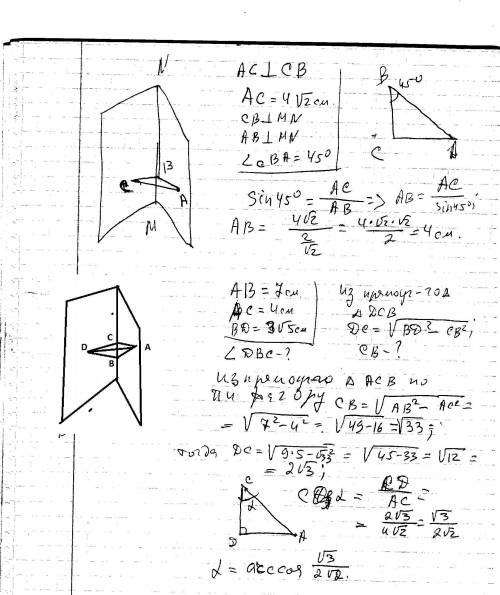 N
B
C
A
M
AC⊥CB
AC = 4√2 см
CB⊥MN
AB⊥MN
∠CBA = 45°
B
45°
C
A
sin 45° = AC/AB => AB = AC/sin 45°;
AB = 4√2 / (2/√2) = (4·√2·√2)/2 = 4 см.
D
C
B
A
AB = 7 см
AC = 4 см
BD = 3√5 см
∠DBC - ?
Из прямоуг-год
Δ DCB
DC = √(BD² - CB²);
CB - ?
Из прямоуго Δ ACB по
CB = √(AB² - AC²) =
= √(7² - 4²) = √(49-16) = √33;
тогда DC = √(9·5 - √33²) = √(45-33) = √12 =
= 2√3;
C
α
D
A
α = CD/AC =
= 2√3/4√2 = √3/2√2
α = arccos √3/2√2.